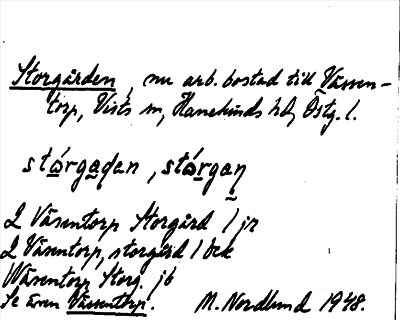 Storgården, nu arb. bostad till Våsen-
torp, Vists sn, Hanekinds hd, Östg. l.
stórgaden, stórgan
2 Våsentorp Storgård 1 jr
2 Våsentorp, storgård 1
Wåsentorp Storg. jb
Se även Våsentorp. M. Nordlund 1948.